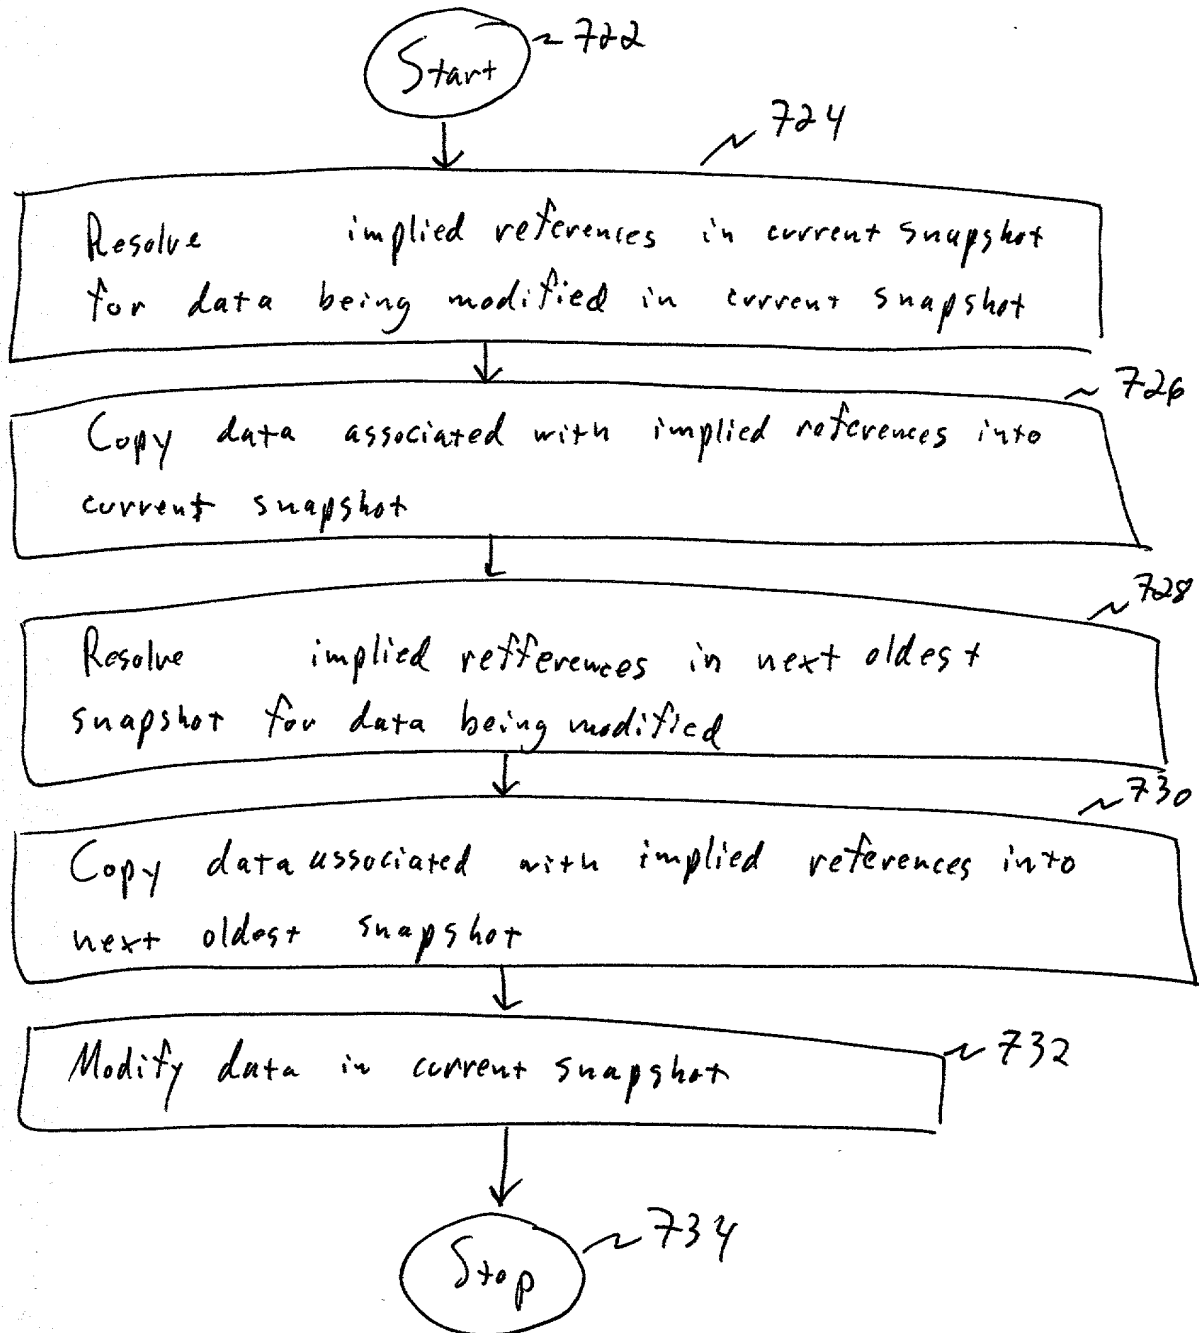 Start 722
724
Resolve implied references in current snapshot
for data being modified in current snapshot
726
Copy data associated with implied references into
current snapshot
728
Resolve implied refferences in next oldest
snapshot for data being modified
730
Copy data associated with implied references into
next oldest snapshot
Modify data in current snapshot 732
734
Stop